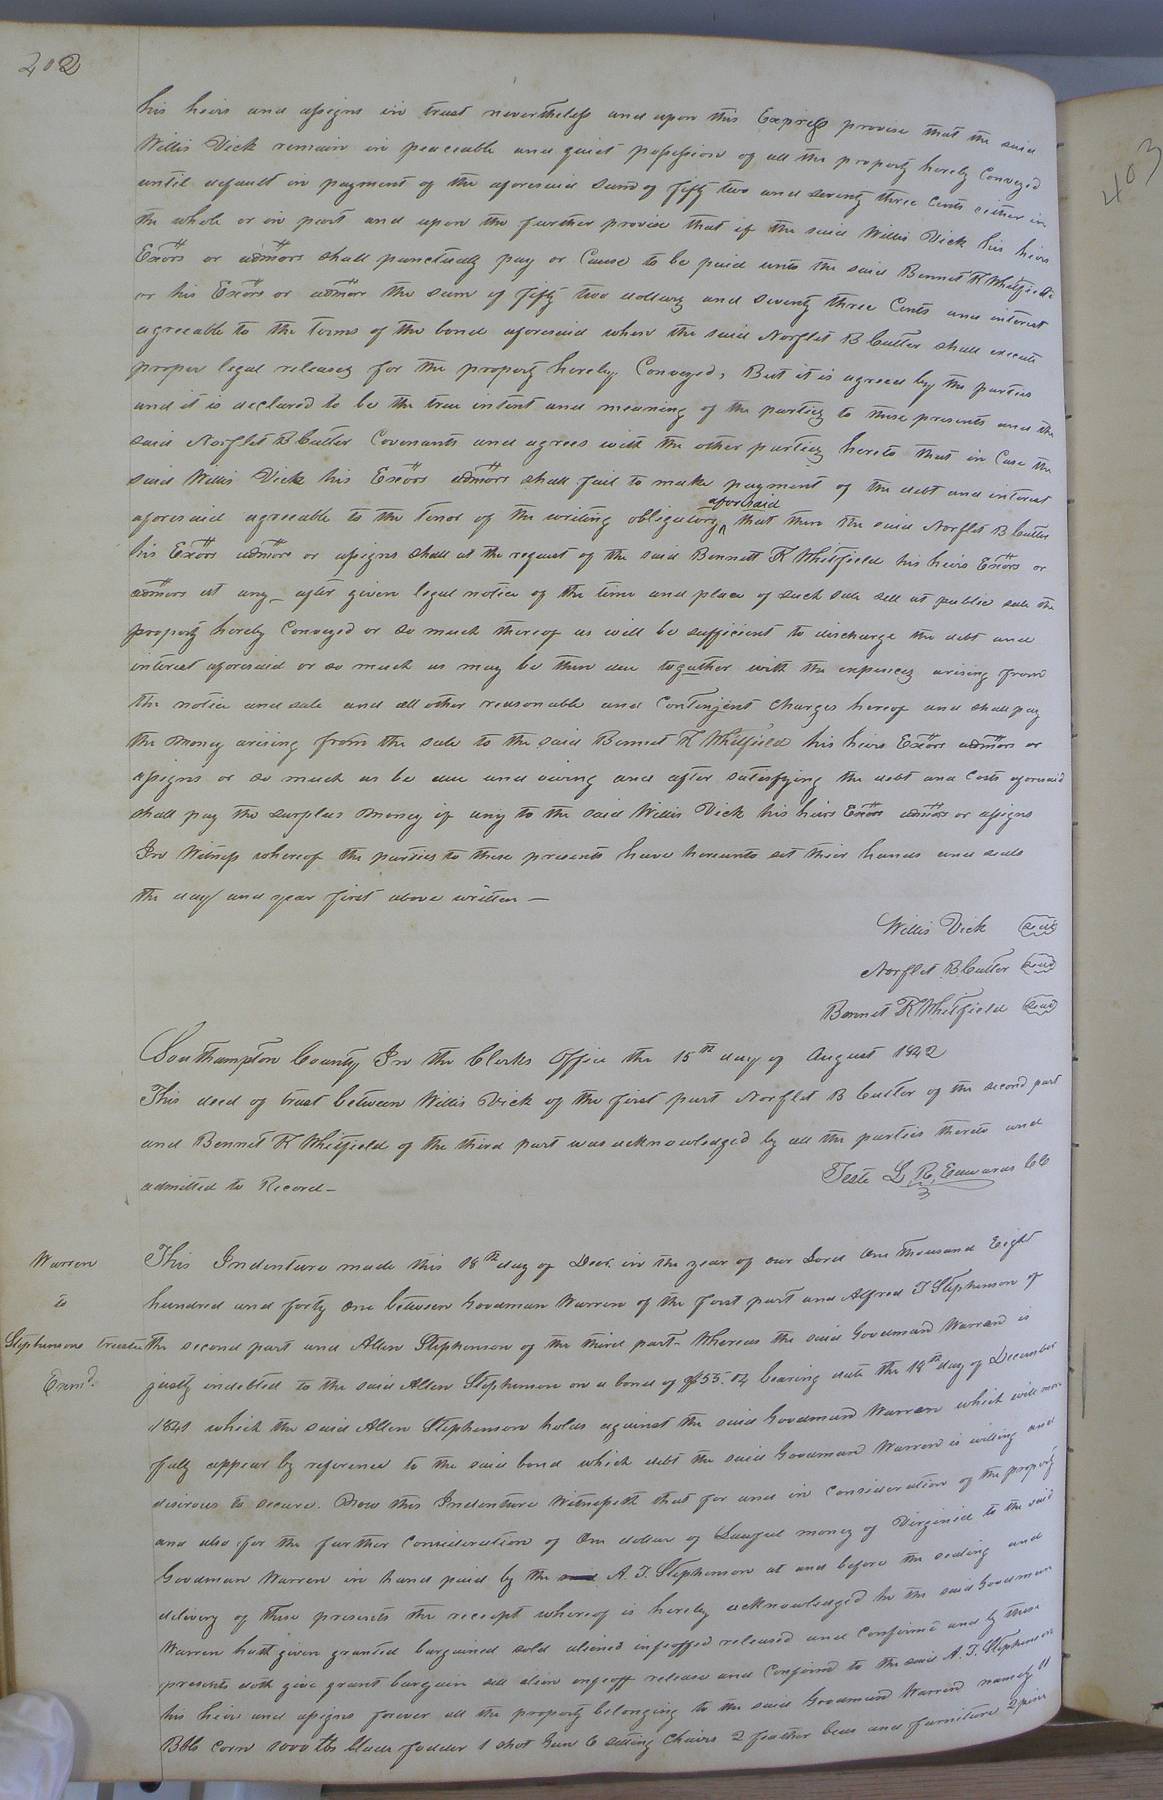 202
403
his heirs and assigns in trust nevertheless and upon this Express proviso that the said
Willis Dick remain in peaceable and quiet possession of all the property hereby Conveyed
until default in payment of the aforesaid sum of fifty two and seventy three Cents either in
the whole or in part and upon the further proviso that if the said Willis Dick his heirs
Exors or admors shall punctually pay or Cause to be paid unto the said Bennet K Whitfield
or his Exors or admors the sum of fifty two dollars and seventy three Cents and interest
agreeable to the terms of the bond aforesaid when the said Norflet B Cutler shall execute
proper legal releases for the property hereby Conveyed, But it is agreed by the parties
and it is declared to be the true intent and meaning of the parties to these presents and the
said Norflet B Cutler Covenants and agrees with the other parties hereto that in Case the
said Willis Dick his Exors admors shall fail to make payment of the debt and interest
aforesaid agreeable to the tenor of the writing obligatory aforesaid that then the said Norflet B Cutler
his Exors admors or assigns shall at the request of the said Bennett K Whitfield his heirs Exors or
admors at any after given legal notice of the time and place of such sale sell at public sale the
property hereby Conveyed or so much thereof as will be sufficient to discharge the debt and
interest aforesaid or so much as may be then due together with the expences arising from
the notice and sale and all other reasonable and Contingent Charges hereof and shall pay
the money arising from the sale to the said Bennet K Whitfield his heirs Exors admors or
assigns or so much as be due and owing and after satisfying the debt and Costs aforesaid
shall pay the surplus money if any to the said Willis Dick his heirs Exors admors or assigns
In Witness whereof the parties to these presents have hereunto set their hands and seals
the day and year first above written —
Willis Dick seal
Norflet B Cutler seal
Bennet K Whitfield seal
Southampton County In the Clerks Office the 15th day of August 1842
This deed of trust between Willis Dick of the first part Norflet B Cutler of the second part
and Bennet K Whitfield of the third part was acknowledged by all the parties thereto and
admitted to Record —
Teste L. R. Edwards CC
Warren
to
Stephensons trustee
Exmd.
This Indenture made this 18th day of Decr. in the year of our Lord One thousand Eight
hundred and forty One between Goodman Warren of the first part and Alfred T Stephenson of
the second part and Allen Stephenson of the third part - Whereas the said Goodman Warren is
justly indebted to the said Allen Stephenson on a bond of bearing date the 18th day of December
1841 which the said Allen Stephenson holds against the said Goodman Warren which will more
fully appear by reference to the said bond which debt the said Goodman Warren is willing and
desirous to secure. Now this Indenture Witnesseth that for and in Consideration of the property
and also for the further Consideration of One dollar of Lawful money of Virginia to the said
Goodman Warren in hand paid by the A. T. Stephenson at and before the sealing and
delivery of these presents the receipt whereof is hereby acknowledged he the said Goodman
Warren hath given granted bargained sold aliened infeoffed released and Confirmed and by these
presents doth give grant bargain sell alien enfeoff release and Confirm to the said A. T. Stephenson
his heirs and assigns forever all the property belonging to the said Goodman Warren namely
Bbls corn 1000 lbs blade fodder 1 shot Gun 6 setting Chairs 2 feather beds and furniture 2